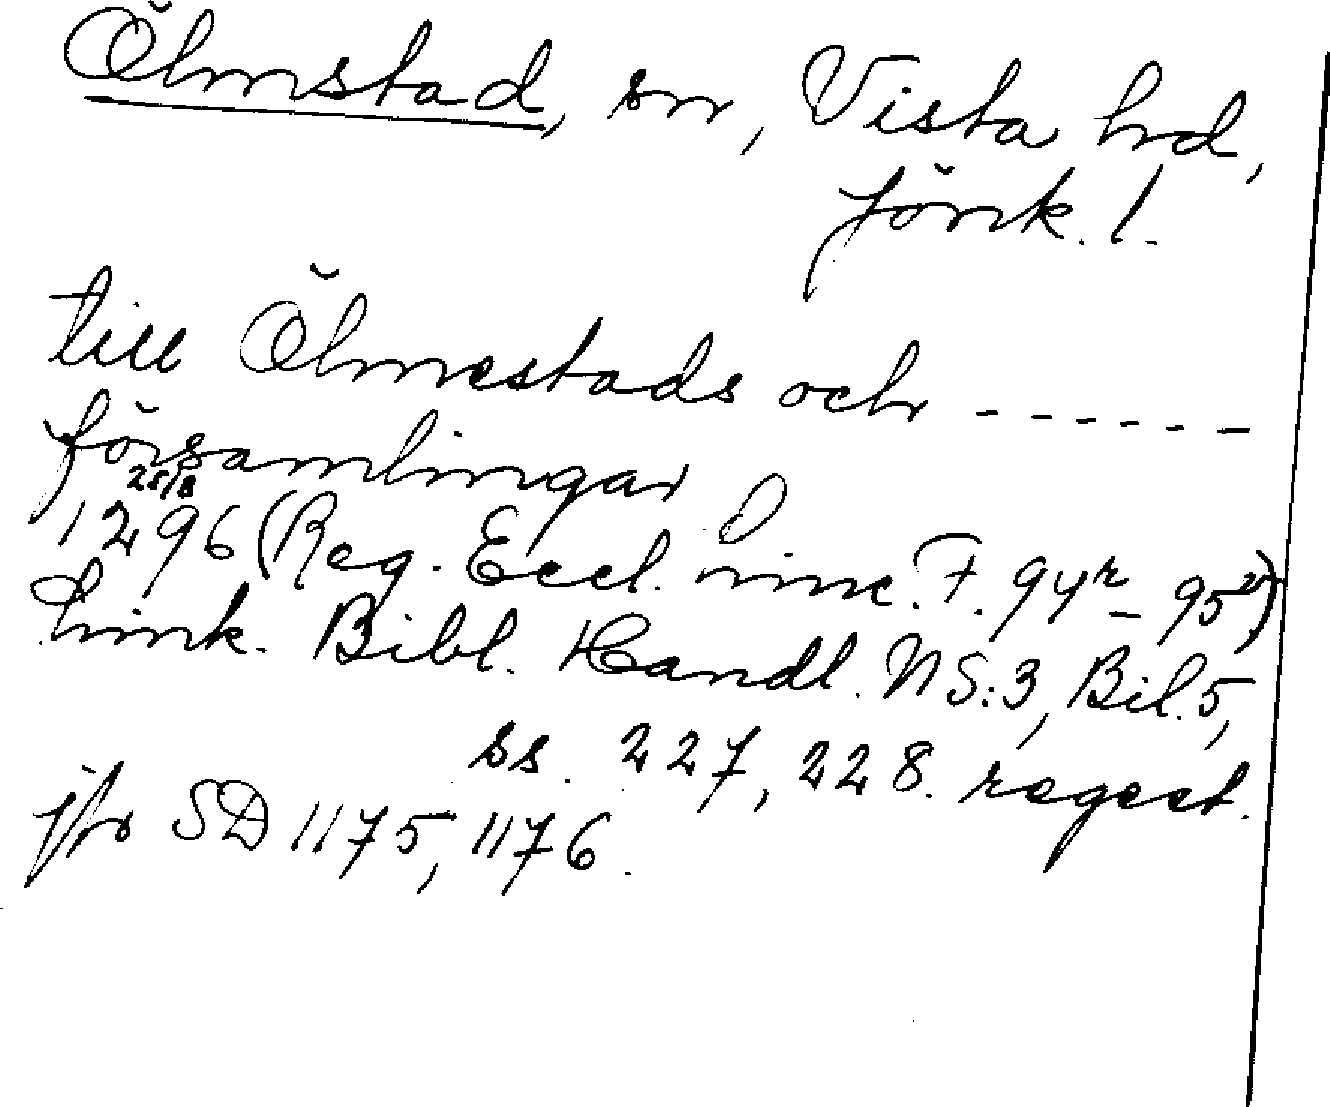 Ölmstad, sn, Vista hd,
Jönk. l.
till Ölmestads och ------
församlingar
25/8
1296 (Reg. Eccl. linc. F. 94r - 95r)
Link. Bibl. Handl. NS:3, Bil. 5,
ss. 227, 228. regest.
jfr SD 1175, 1176.